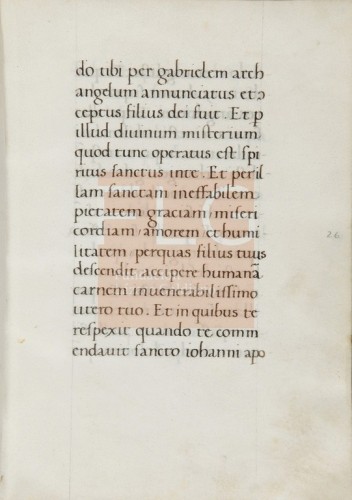 do tibi per gabrielem arch
angelum annunciatus et ↄ
ceptus filius dei fuit. Et ꝑ
illud diuinum misterium
quod tunc operatus est spi
ritus sanctus inte. Et per il
lam sanctam ineffabilem
pietatem graciam miseri
cordiam amorem et humi
litatem perquas filius tuus
descendit accipere humanã
carnem in uenerabilissimo
utero tuo. Et in quibus te
respexit quando te comm
endauit sancto iohanni apo
26
FLC